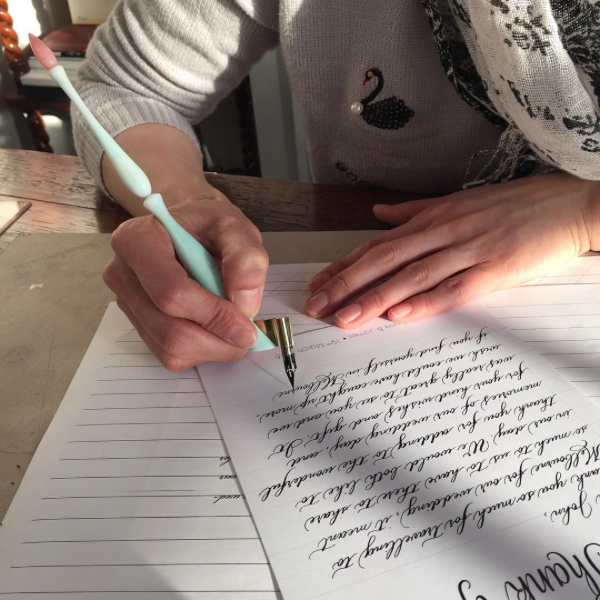 Thank y
John,
hank you so much for traveling to
Melbourne for our wedding, it meant
so much to us to have there to share
in our day. We would both like to
thank you for adding to the wonderful
memories of our wedding day and
for your kind wishes and gift. It
was really great to see you and we
wish we could have caught up more.
If you find yourself in Melbourne
& James • 19th March